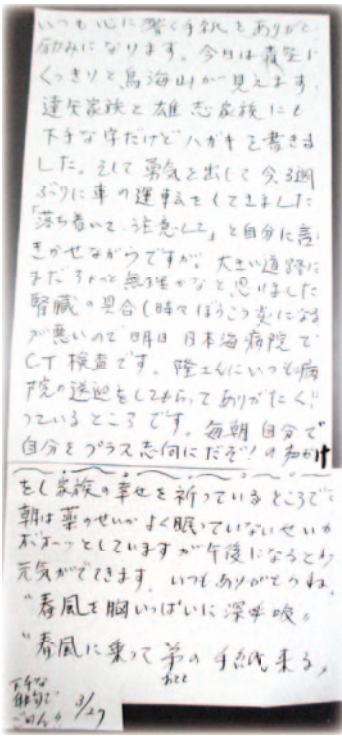 いつも心に響く手紙をありがと
励みになります。今日は青空に
くっきりと鳥海山が見えます。
達矢家族と雄志家族にも
下手な字だけどハガキを書きま
した。そして勇気を出して今、3週
ぶりに車の運転をしてきました
「落ち着いて、注意して」と自分に言い
きかせながらですが。大きい道路は
まだちょっと無理かなと思いました
腎臓の具合(時々ぼうこう炎になる
が悪いので明日日本海病院で
CT検査です。隆さんにいつも病
院の送迎をしてもらってありがたく思
っているところです。毎朝自分で
自分をプラス志向にだぞ!の声かけ
をし家族の幸せを祈っているところで
朝は薬のせいかよく眠っていないせいか
ボォーッとしていますが午後になるとわ
元気がでてきます。いつもありがとうね。
"春風を胸いっぱいに深呼吸"
"春風に乗って弟の手紙来る"
おとと
下手な
俳句で
ごめん!!
3/27